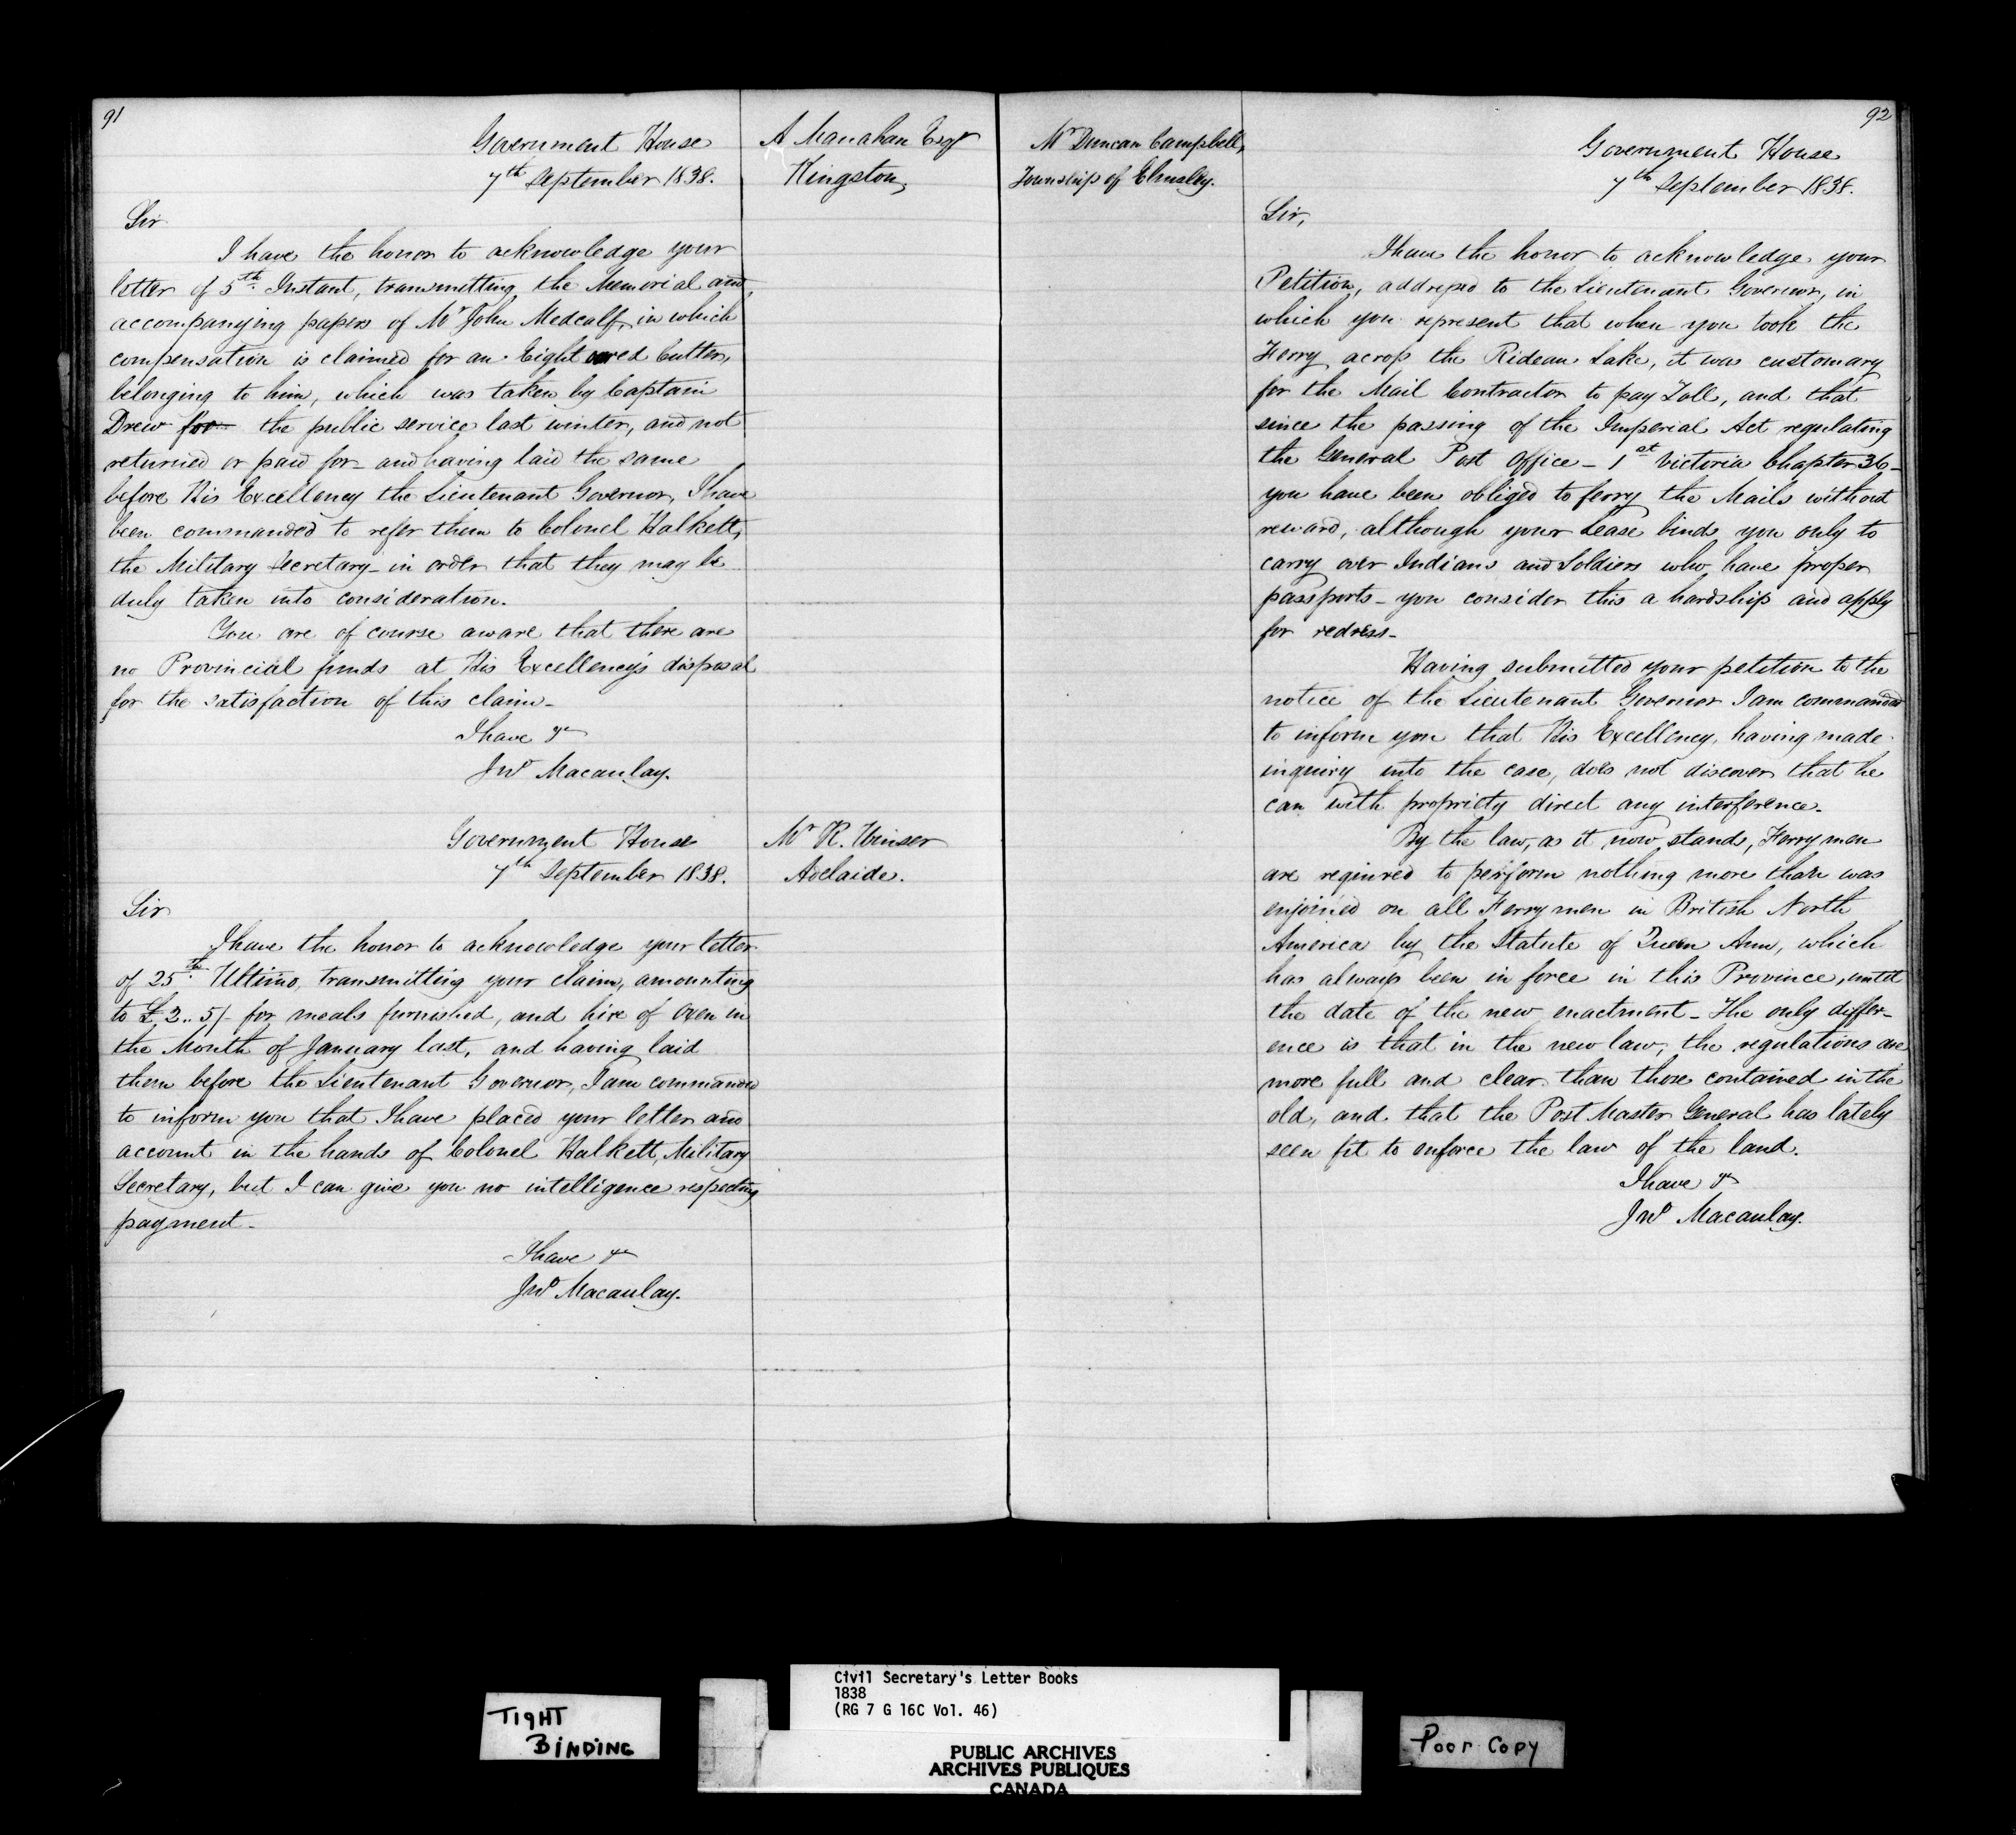 91
Government House
7th September 1838.
A Manahan Esqr
Kingston,
Sir
I have the honor to acknowledge your
letter of 5th Instant, transmitting the Memorial and
accompanying papers of Mr John Medcalf, in which
compensation is claimed for an Eight oared Cutter,
belonging to him, which was taken by Captain
Drew for the public service last winter, and not
returned or paid for – and having laid the same
before His Excellency the Lieutenant Governor, I have
been commanded to refer them to Colonel Halkett,
the Military Secretary – in order that they may be
duly taken into consideration.
You are of course aware that there are
no Provincial funds at His Excellency's disposal
for the satisfaction of this claim –
I have &c
Jno Macaulay.
Government House
7th September 1838.
Mr R. Winser
Adelaide.
Sir
I have the honor to acknowledge your letter
of 25th Ultimo, transmitting your claim, amounting
to £2..5/- for meals furnished, and hire of Oxen in
the Month of January last, and having laid
them before the Lieutenant Governor, I am commanded
to inform you that I have placed your letter and
account in the hands of Colonel Halkett, Military
Secretary, but I can give you no intelligence respecting
payment –
I have &c
Jno Macaulay.
92
Mr Duncan Campbell,
Township of Elmsley.
Government House
7th September 1838.
Sir,
I have the honor to acknowledge your
Petition, addressed to the Lieutenant Governor, in
which you represent that when you took the
Ferry across the Rideau Lake, it was customary
for the Mail Contractor to pay Toll, and that
since the passing of the Imperial Act regulating
the General Post Office – 1st Victoria Chapter 36 –
you have been obliged to ferry the Mails without
reward, although your Lease binds you only to
carry over Indians and Soldiers who have proper
passports – you consider this a hardship and apply
for redress –
Having submitted your petition to the
notice of the Lieutenant Governor I am commanded
to inform you that His Excellency, having made
inquiry into the case, does not discover that he
can with propriety direct any interference.
By the law, as it now stands, Ferrymen
are required to perform nothing more than was
enjoined on all Ferrymen in British North
America by the Statute of Queen Ann, which
has always been in force in this Province, until
the date of the new enactment – The only differ-
ence is that in the new law, the regulations are
more full and clear than those contained in the
old, and that the Post Master General has lately
seen fit to enforce the law of the land.
I have &c
Jno Macaulay.
TIGHT
BINDING
Civil Secretary's Letter Books
1838
(RG 7 G 16C Vol. 46)
PUBLIC ARCHIVES
ARCHIVES PUBLIQUES
CANADA
Poor Copy